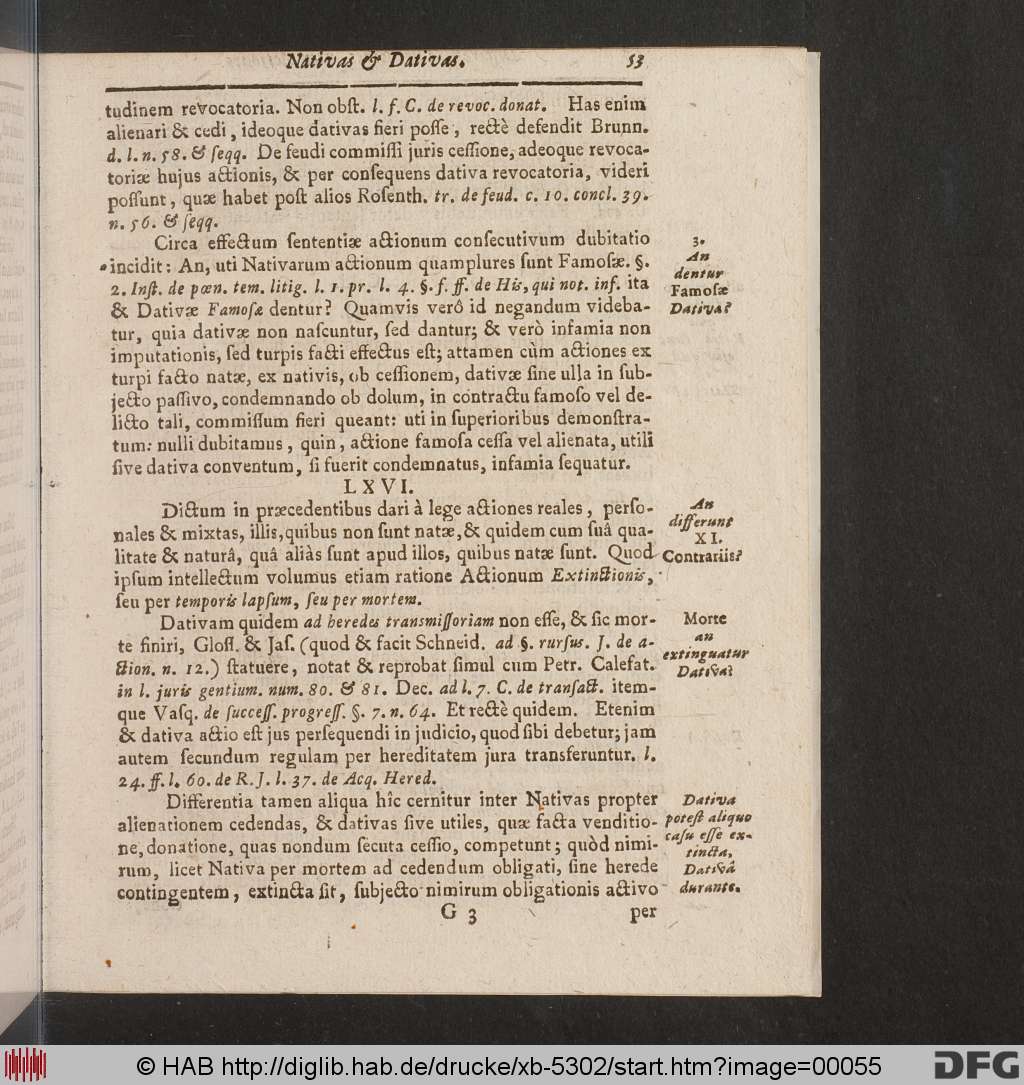 Nativas & Dativas. 53
tudinem revocatoria. Non obſt. l. f. C. de revoc. donat. Has enim
alienari & cedi, ideoque dativas fieri poſſe, rectè defendit Brunn.
d. l. n. 58. & ſeqq. De feudi commiſſi juris ceſſione, adeoque revoca-
toriæ hujus actionis, & per conſequens dativa revocatoria, videri
poſſunt, quæ habet poſt alios Roſenth. tr. de feud. c. 10. concl. 39.
n. 56. & ſeqq.
Circa effectum ſententiæ actionum conſecutivum dubitatio
incidit: An, uti Nativarum actionum quamplures ſunt Famoſæ. §.
2. Inſt. de pœn. tem. litig. l. 1. pr. l. 4. §. f. ff. de His, qui not. inf. ita
& Dativæ Famoſæ dentur? Quamvis verô id negandum videba-
tur, quia dativæ non naſcuntur, ſed dantur; & verò infamia non
imputationis, ſed turpis facti effectus eſt; attamen cùm actiones ex
turpi facto natæ, ex nativis, ob ceſſionem, dativæ ſine ulla in ſub-
jecto paſſivo, condemnando ob dolum, in contractu famoſo vel de-
licto tali, commiſſum fieri queant: uti in ſuperioribus demonſtra-
tum: nulli dubitamus, quin, actione famoſa ceſſa vel alienata, utili
ſive dativa conventum, ſi fuerit condemnatus, infamia ſequatur.
3.
An
dentur
Famoſæ
Dativa?
LXVI.
Dictum in præcedentibus dari à lege actiones reales, perſo-
nales & mixtas, illis, quibus non ſunt natæ, & quidem cum ſuâ qua-
litate & naturâ, quâ aliàs ſunt apud illos, quibus natæ ſunt. Quod
ipſum intellectum volumus etiam ratione Actionum Extinctionis,
ſeu per temporis lapſum, ſeu per mortem.
An
differunt
XI.
Contrariis?
Dativam quidem ad heredes transmiſſoriam non eſſe, & ſic mor-
te finiri, Gloſſ. & Jaſ. (quod & facit Schneid. ad §. rurſus. J. de a-
ction. n. 12.) ſtatuere, notat & reprobat ſimul cum Petr. Calefat.
in l. juris gentium. num. 80. & 81. Dec. ad l. 7. C. de tranſact. item-
que Vaſq. de ſucceſſ. progreſſ. §. 7. n. 64. Et rectè quidem. Etenim
& dativa actio eſt jus perſequendi in judicio, quod ſibi debetur; jam
autem ſecundum regulam per hereditatem jura transferuntur. l.
24. ff. l. 60. de R. J. l. 37. de Acq. Hered.
Morte
an
extinguatur
Dativa?
Differentia tamen aliqua hîc cernitur inter Nativas propter
alienationem cedendas, & dativas ſive utiles, quæ facta venditio-
ne, donatione, quas nondum ſecuta ceſſio, competunt; quòd nimi-
rum, licet Nativa per mortem ad cedendum obligati, ſine herede
contingentem, extincta ſit, ſubjecto nimirum obligationis activo
Dativa
poteſt aliquo
caſu eſſe ex-
tincta,
Dativâ
durante.
G 3 per
© HAB http://diglib.hab.de/drucke/xb-5302/start.htm?image=00055
DFG